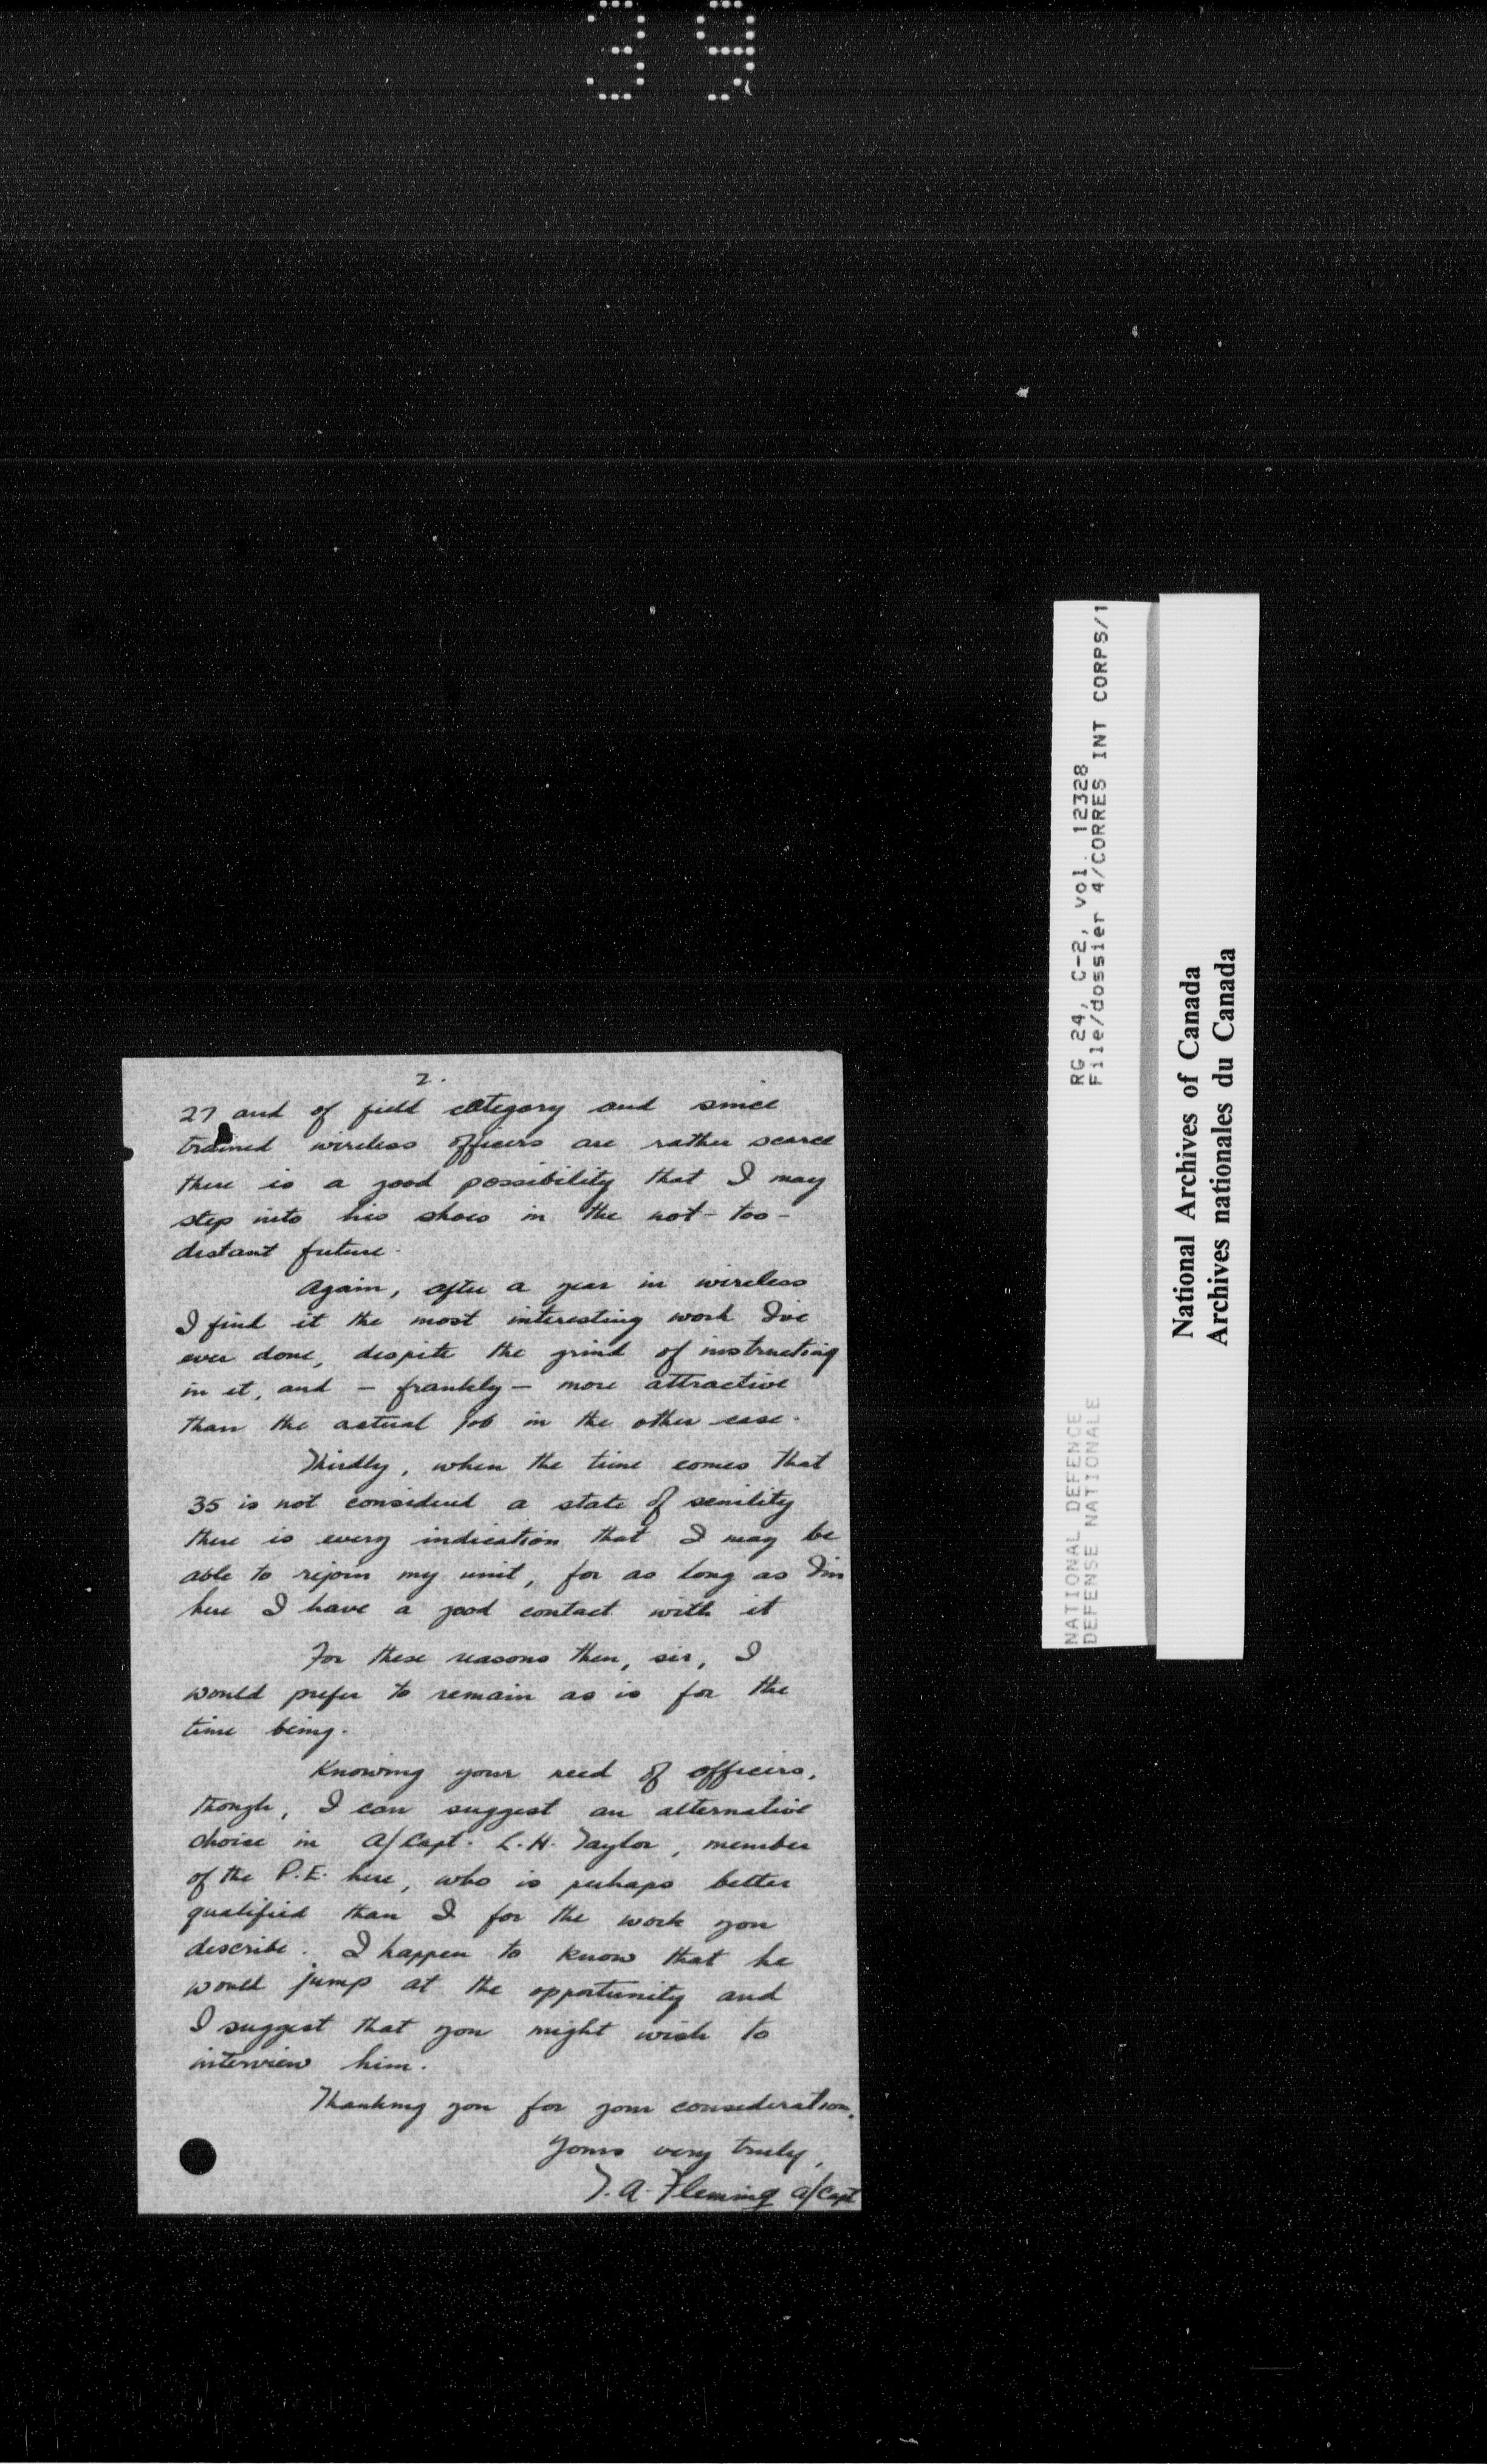 39
2.
27 and of field category and since
trained wireless officers are rather scarce
there is a good possibility that I may
step into his shoes in the not-too-
distant future.
Again, after a year in wireless
I find it the most interesting work I've
ever done, despite the grind of instructing
in it, and – frankly – more attractive
than the actual job in the other case.
Thirdly, when the time comes that
35 is not considered a state of senility
there is every indication that I may be
able to rejoin my unit, for as long as I'm
here I have a good contact with it
For these reasons then, sir, I
would prefer to remain as is for the
time being.
Knowing your need of officers,
though, I can suggest an alternative
choice in A/Capt. L.H. Taylor, member
of the P.E. here, who is perhaps better
qualified than I for the work you
describe. I happen to know that he
would jump at the opportunity and
I suggest that you might wish to
interview him.
Thanking you for your consideration.
Yours very truly,
T.A. Fleming A/Capt
RG 24, C-2, vol. 12328
File/dossier 4/CORRES INT CORPS/1
NATIONAL DEFENCE
DEFENSE NATIONALE
National Archives of Canada
Archives nationales du Canada